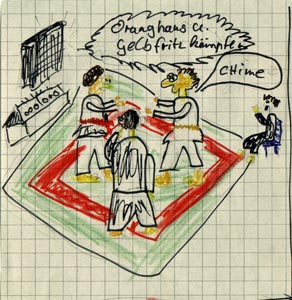 Oranghans u.
Gelbfritz kämpfen
CHime